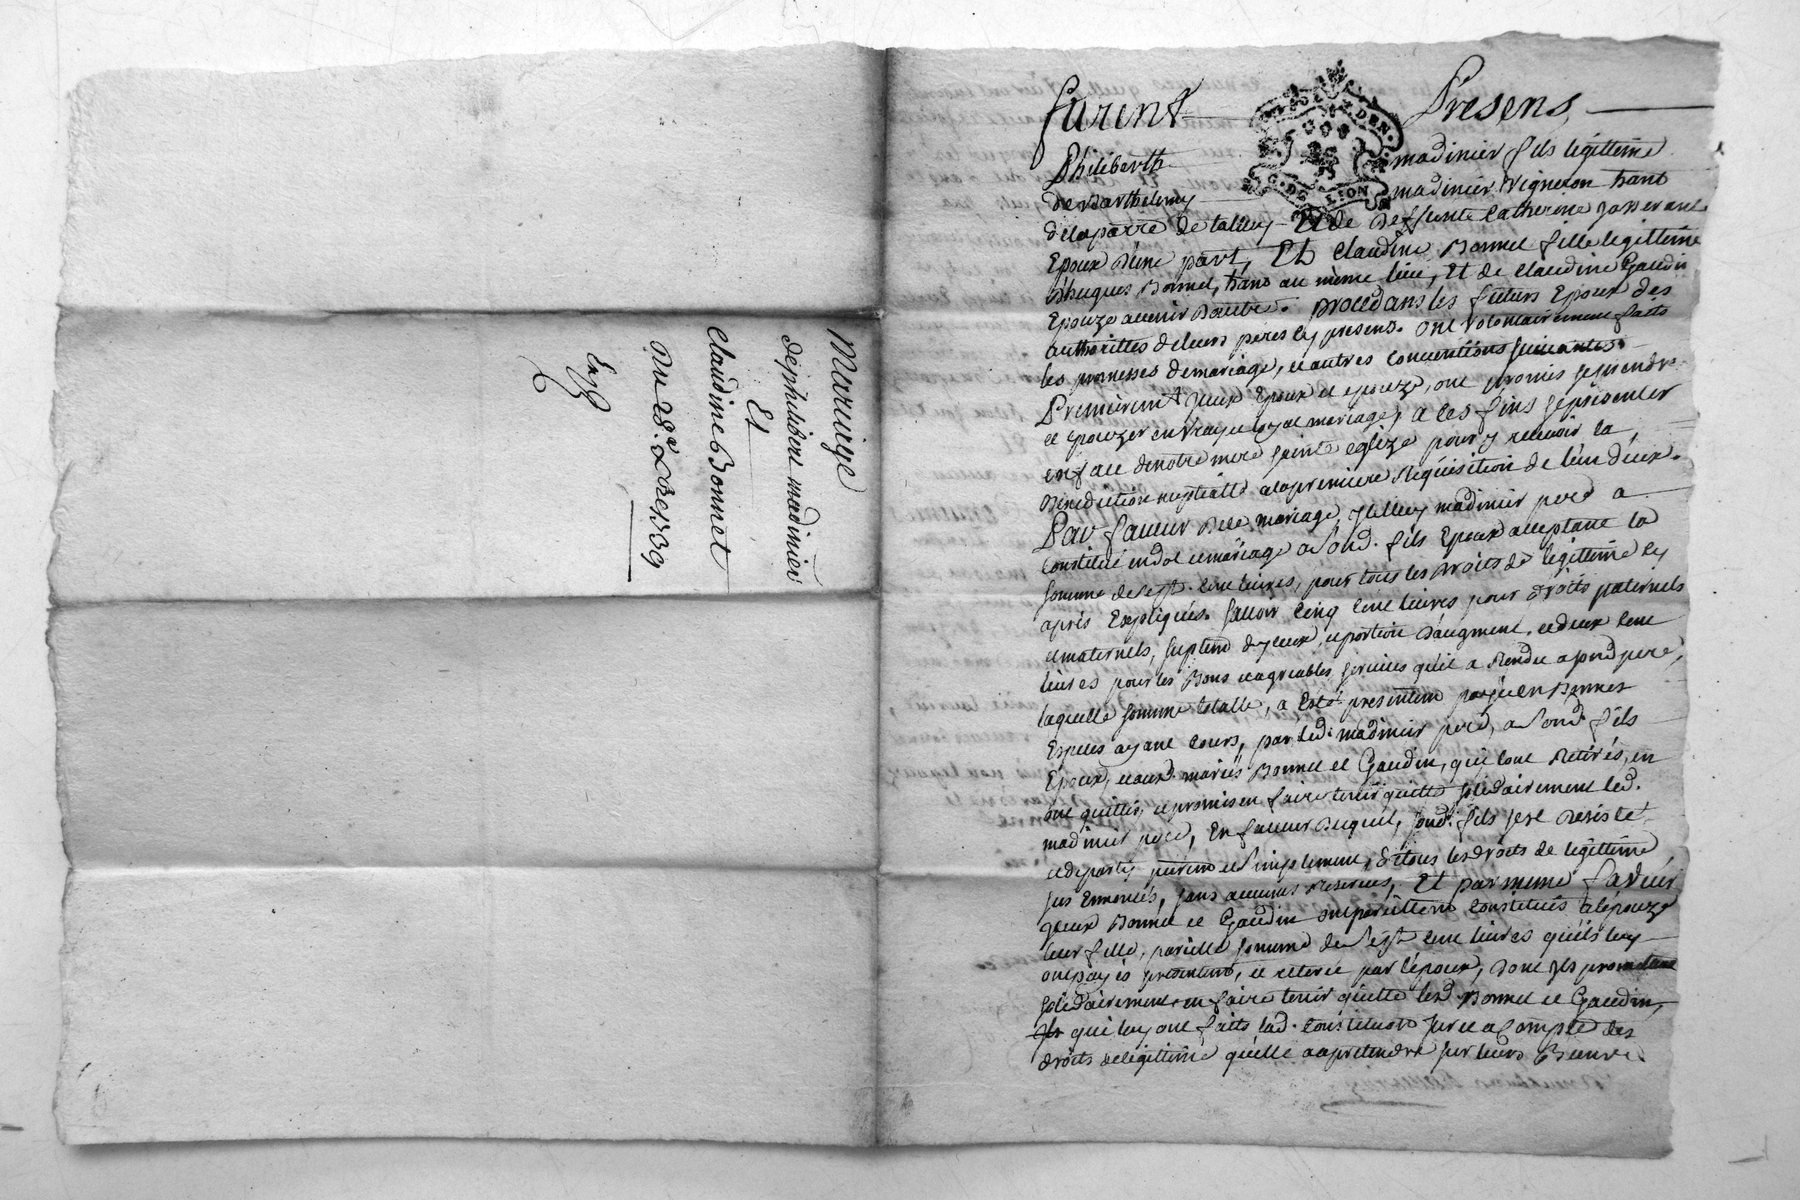 Mariage
de philibert madinier
Et
Claudine Bonnet
Du 28e xbre 1739
Exp.
furent Presens
GEN. DE LION
Philiberth madinier fils légittime
de Barthelemy madinier vigneron hant
delaparre de taluy Et de deffunte Catherine
Epoux d'une part, Et Claudine Bonnet fille legittime
d'hugues Bonnet, hant au même lieu, Et de Claudine Gaudin
Epouze avenir d'autre. procedans les futurs Epoux des
authorittés de leurs peres cy presens. ont volontairement faits
les promesses demariage, et autres conventions suivantes
Premieremt yceux Epoux et epouze, ont promis se prendre
et epouzer en vray et loyal mariage, a ces fins se presenter
en face denotre mere sainte eglize pour y recevoir la
Benediction nuptialle alapremiere Requisition de l'un deux.
Par faveur dece mariage, madinier pere a
constitué en dot et mariage a sond. fils Epoux acceptant la
somme de sept cent livres, pour tous les droits de legittime cy
après Expliqués. sçavoir cinq cent livres pour droits paternels
et maternels, suplemt d'yceux, et portion d'augment, et deux cent
livres pour les Bons et agreables services qu'il a rendu a sond pere,
laquelle somme totalle, a Esté presentemt payée en Bonnes
Especes ayant cours, par led. madinier pere, a sond. fils
Epoux, et aux mariés Bonnet et Gaudin, qui l'ont retirés, en
ont quittés, et promis en faire tenir quitte solidairement led.
madinier pere, En faveur duquel, sond. fils sest desisté
et departy puremt et simplement, de tous les droits de legittime
sus Enoncés, sans aucunes reserves, Et par meme faveur
yceux Bonnet et Gaudin ont pareillemt constitués a lepouze
leur fille, pareille somme de sept cent livres qu'ils luy
ont payés presentemt, et retirée par l'epoux, dont ils promettent
solidairement en faire tenir quitte lesd. Bonnet et Gaudin,
qui luy ont faits lad. constitution sur et a compte des
droits de legittime qu'elle a apretendre sur leurs Biens